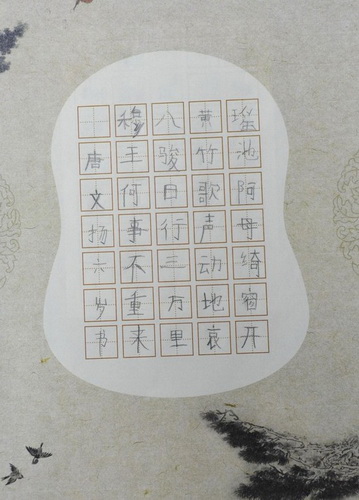 瑶池阿母绮窗开
黄竹歌声动地哀
八骏日行三万里
穆王何事不重来
唐文扬六岁书